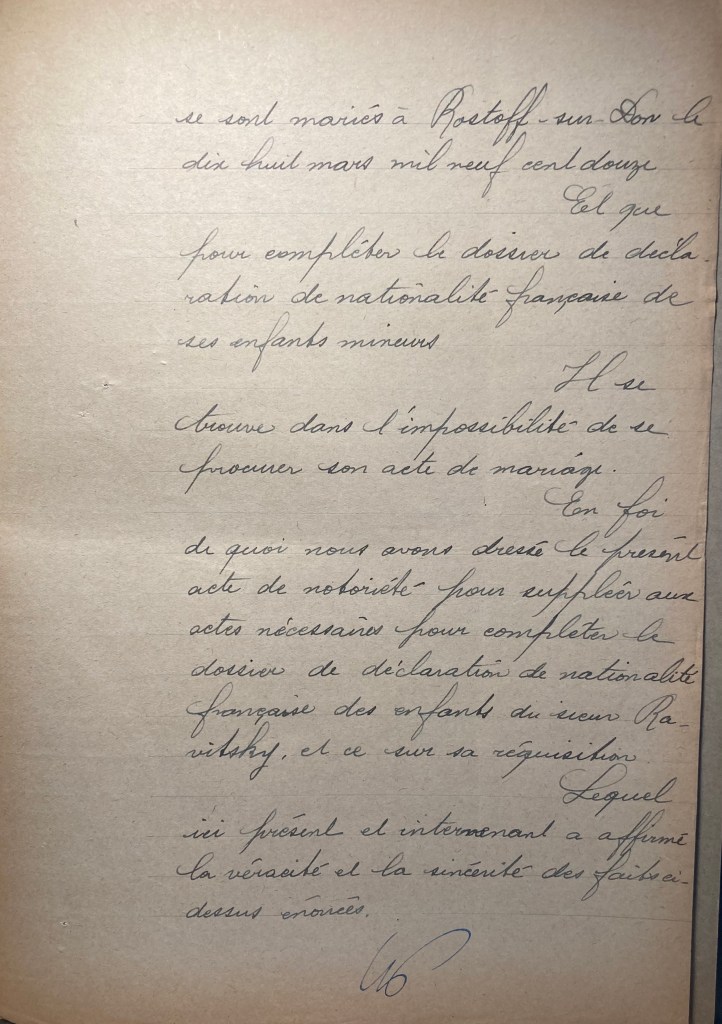 se sont mariés à Rostoff-sur-Don le
dix huit mars mil neuf cent douze
Et que
pour compléter le dossier de décla-
ration de nationalité française de
ses enfants mineurs
Il se
trouve dans l'impossibilité de se
procurer son acte de mariage.
En foi
de quoi nous avons dressé le présent
acte de notoriété pour suppléer aux
actes nécessaires pour compléter le
dossier de déclaration de nationalité
française des enfants du sieur Ra-
vitsky, et ce sur sa réquisition.
Lequel
ici présent et intervenant a affirmé
la véracité et la sincérité des faits ci-
dessus énoncés.